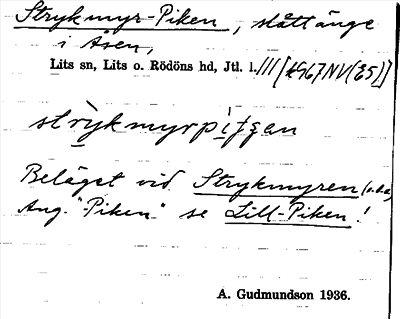 Strykmyr-Piken, slåttänge
i Åsen,
Lits sn, Lits o. Rödöns hd, Jtl. l.
strykmyrpi
Beläget vid Strykmyren (s.d.)
Ang. "Piken" se Lill-Piken!
A. Gudmundson 1936.